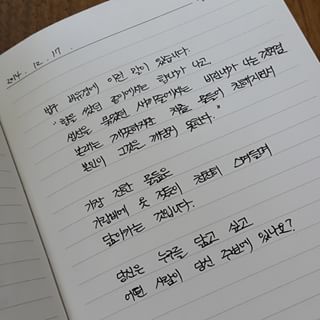 2014. 12. 17.
법구 비유경에 이런 말이 있습니다.
"향을 쌌던 종이에서는 향내가 나고,
생선을 묶었던 새끼줄에서는 비린내가 나는 것처럼
본래는 깨끗하지만 차츰 물들어 친해지면서
본인이 그것을 깨닫지 못한다.
가장 진한 물듦은
가랑비에 옷 젖듯이 천천히 스며들며
닮아가는 것입니다.
당신은 누구를 닮고 싶고
어떤 사람이 당신 주변에 있나요?